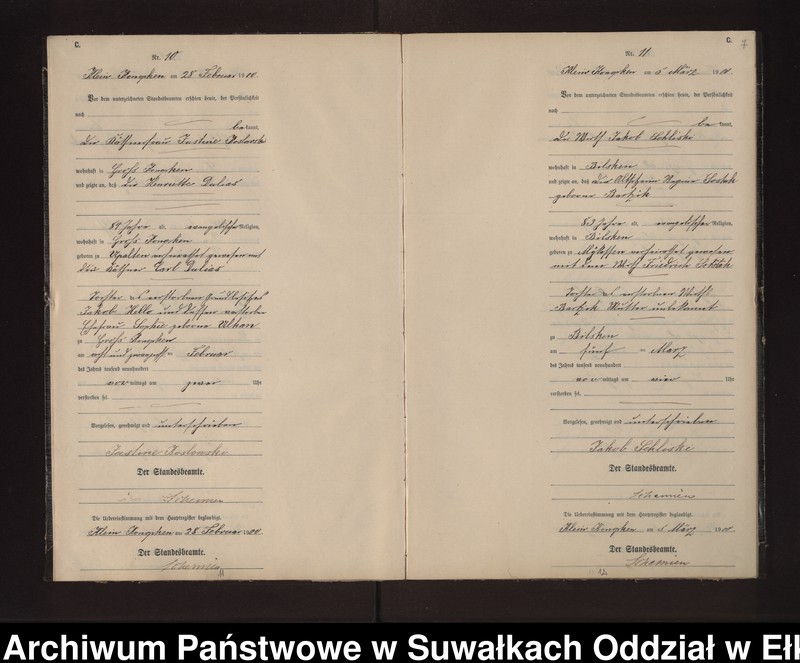 C.
Nr. 10
Klein Jongken am 28 Februar 1900
Vor dem unterzeichneten Standesbeamten erschien heute, der Persönlichkeit
nach
be kannt,
die Käthnerfrau Justine Koslowski
wohnhaft in Groß Jongken
und zeigte an, daß die Henriette Dulias
89 Jahre alt, evangelischer Religion,
wohnhaft in Groß Jongken
geboren zu Upalten verheirathet gewesen mit
dem Käthner Carl Dulias
Tochter des verstorbenen Grundbesitzers
Jakob Killo und dessen verstorbene
Ehefrau Sophie geborene
zu Groß Jongken
am acht und zwanzigsten Februar
des Jahres tausend neunhundert
vor mittags um zwei Uhr
verstorben sei.
Vorgelesen, genehmigt und unterschrieben
Justine Koslowski
Der Standesbeamte.
Schemien
Die Uebereinstimmung mit dem Hauptregister beglaubigt.
Klein Jongken am 28 Februar 1900
Der Standesbeamte.
Schemien
11
C.
7
Nr. 11
Klein Jongken am 5 März 1900
Vor dem unterzeichneten Standesbeamten erschien heute, der Persönlichkeit
nach
be kannt,
der Wirth Jakob Schliski
wohnhaft in Bilsken
und zeigte an, daß die Altsitzerin Regine Sostak
geborene Bartzik
83 Jahre alt, evangelischer Religion,
wohnhaft in Bilsken
geboren zu verheirathet gewesen
mit dem Wirth Friedrich Sostak
Tochter des verstorbenen Wirths
Bartzik Mutter unbekannt
zu Bilsken
am fünf ten März
des Jahres tausend neunhundert
vor mittags um vier Uhr
verstorben sei.
Vorgelesen, genehmigt und unterschrieben
Jakob Schliski
Der Standesbeamte.
Schemien
Die Uebereinstimmung mit dem Hauptregister beglaubigt.
Klein Jongken am 5 März 1900.
Der Standesbeamte.
Schemien
12
Archiwum Państwowe w Suwałkach Oddział w Ełk